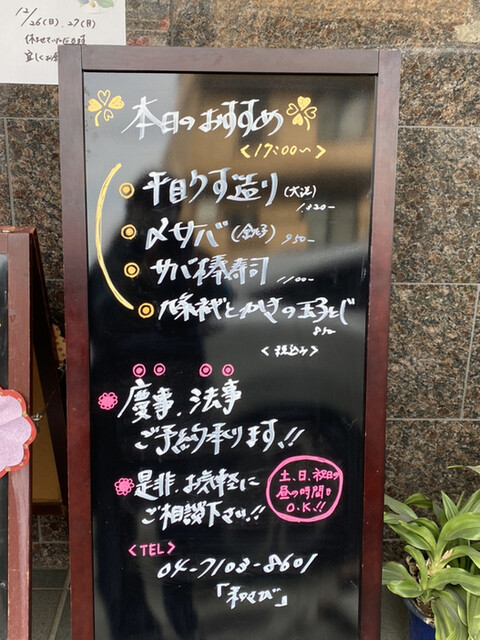 12/26(日)、27(月)
休ませていただきます
宜しくお
本日のおすすめ
<17:00〜>
平目うす造り(大洗)
1,320-
〆サバ(金华)950-
サバ棒寿司
1,100-
九条ねぎとかきの玉子とじ
<税込み>
慶事、法事
ご予約承ります!!
是非、お気軽に
ご相談下さい!!
土、日、祝日の
昼の時間も
O.K.!!
<TEL>
04-7103-8601
「和さび」